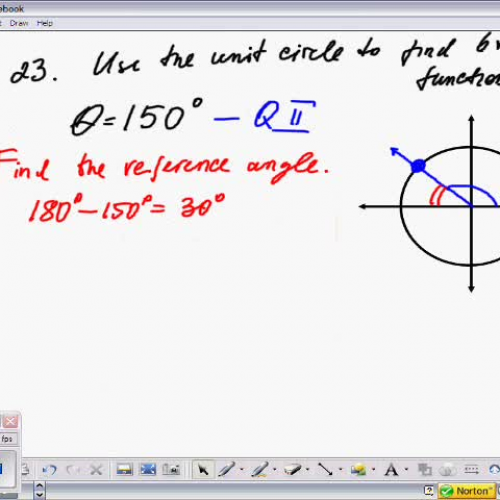 otebook
t Draw Help
23. Use the unit circle to find
function
θ=150° – QII
Find the reference angle.
180° – 150° = 30°
fps
A
?
Norton™